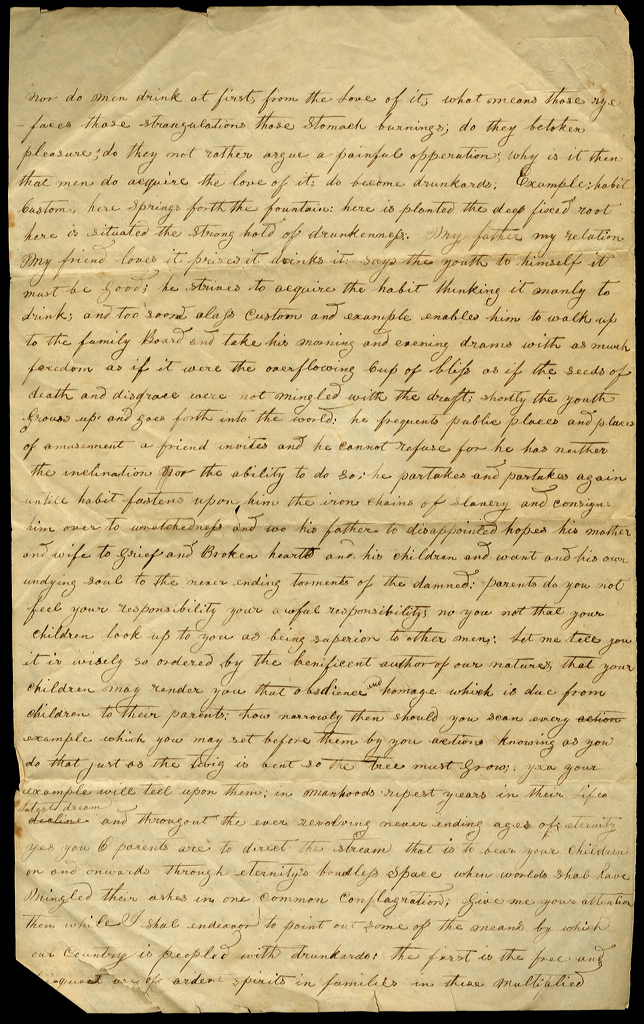 Nor do men drink at first, from the love of it, what means those rye
faces those strangulations those stomach burnings; do they betoken
pleasure; do they not rather argue a painful opperation; why is it then
that men do acquire the love of it; do become drunkards. Example; habit
Custom, here springs forth the fountain: here is planted the deep fixed root
here is situated the strong hold of drunkenness. My father my relation
My friend loves it prizes it drinks it: says the youth to himself it
must be Good; he strives to acquire the habit thinking it manly to
drink; and too soon alass Custom and example enables him to walk up
to the family Board and take his morning and evening drams with as much
freedom as if it were the overflowing Cup of bliss as if the seeds of
death and disgrace were not mingled with the draft; shortly the youth
Grows up and goes forth into the world; he frequents public places and places
of amusement a friend invites and he cannot refuse for he has neither
the inclination nor the ability to do so; he partakes and partakes again
untill habit fastens upon him the iron chains of slavery and consigns
him over to wretchedness and wo his father to disappointed hopes his mother
and wife to Grief and Broken hearts and his children and want and his own
undying soul to the never ending torments of the damned: parents do you not
feel your responsibility your awful responsibility; no you not that your
children look up to you as being superior to other men; Let me tell you
it is wisely so ordered by the benificent author of our natures, that your
children may render you that obedience and homage which is due from
children to their parents; how narrowly then should you scan every action
example which you may set before them by you actions knowing as you
do that just as the twig is bent so the tree must Grow; yea your
example will tell upon them; in manhoods ripest years in their lifes
latest dream
decline and througout the ever revolving never ending ages of eternity
yes you O parents are to direct the stream that is to bear your children
on and onwards through eternity's boundless space when worlds shal have
Mingled their ashes in one common conflagration; Give me your attention
then while I shal endeavor to point out some of the means by which
our Country is peopled with drunkards: the first is the free and
use of ardent spirits in families in these multiplied